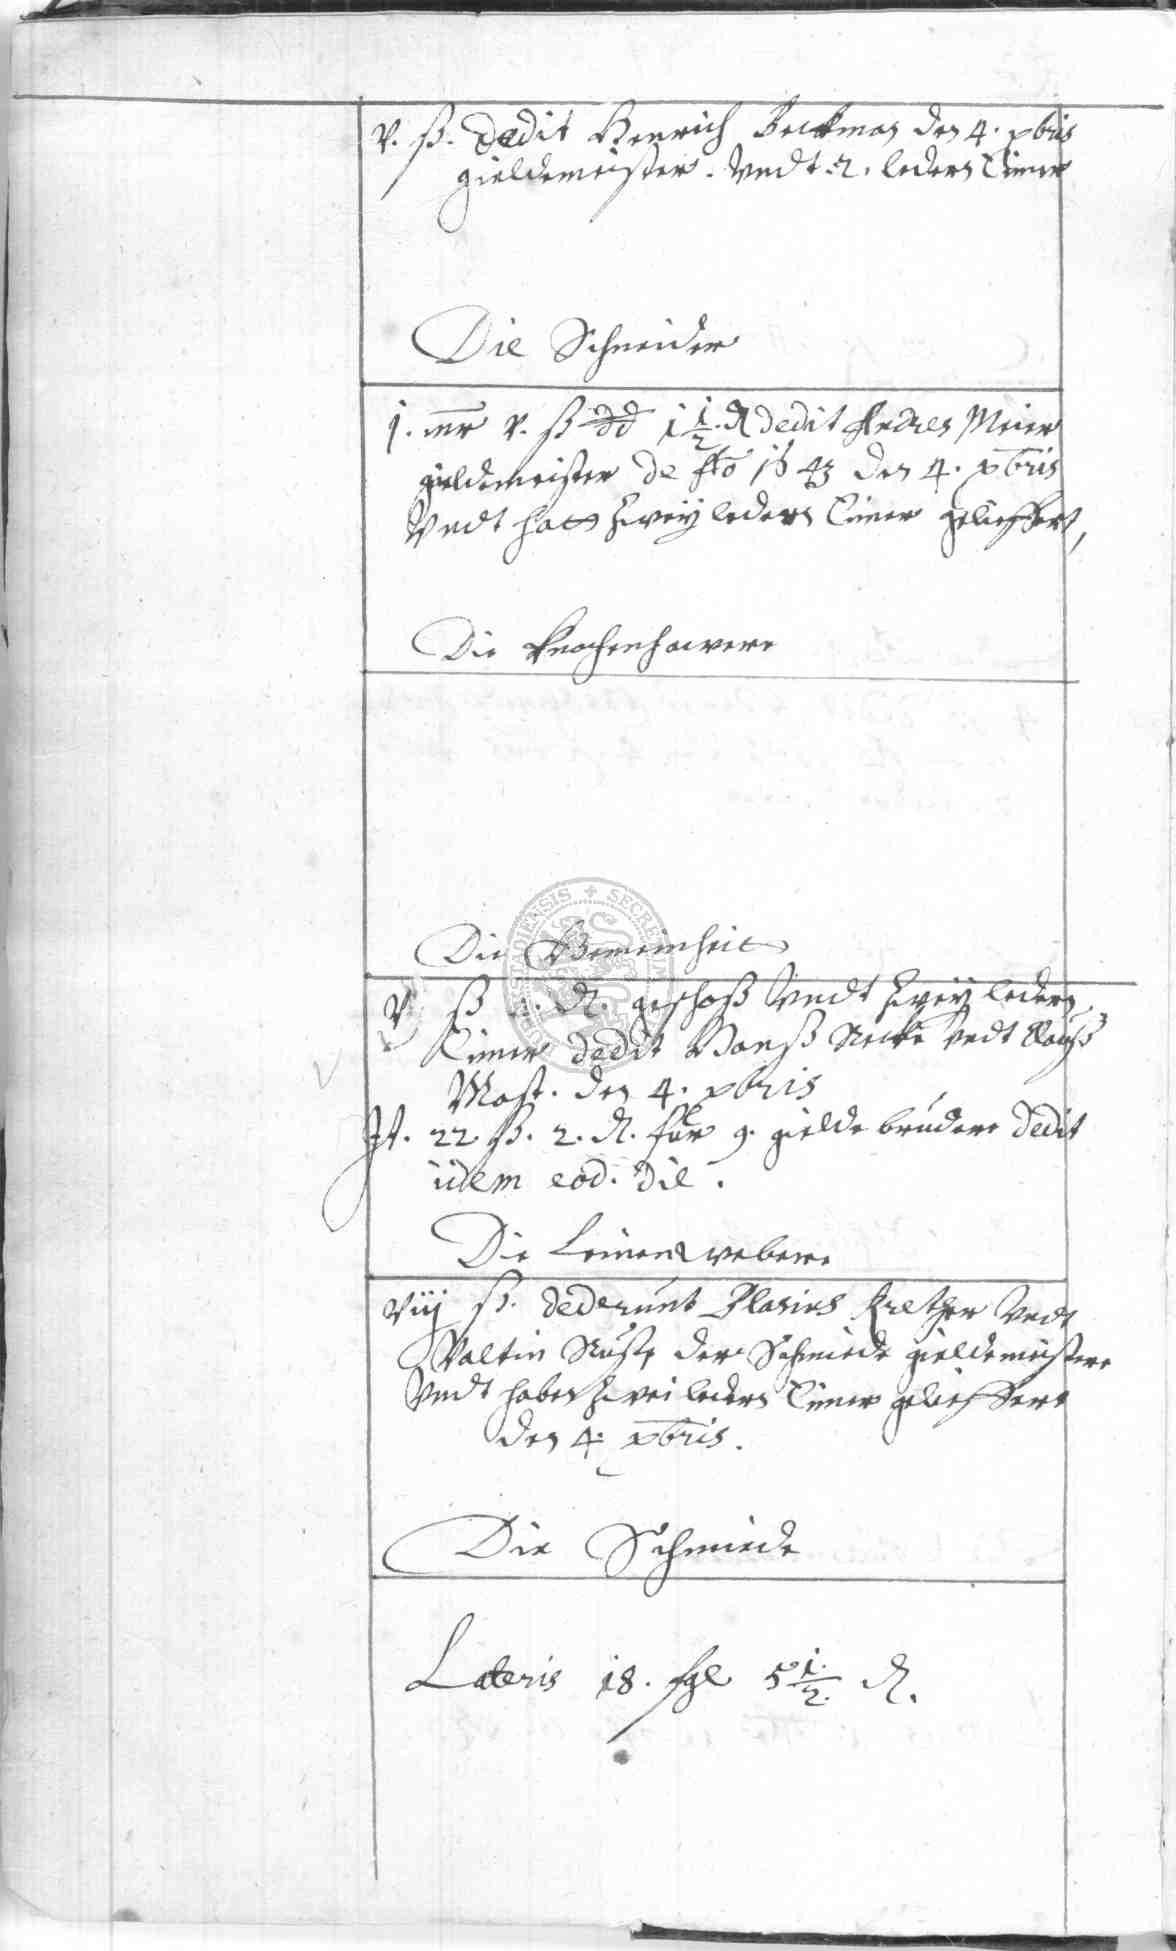 v. ß. dedit Henrich Beckman den 4. xbris
gieldemeister. Vndt .2. ledern Eimer
Die Schneider
j. mr v. ß 1 1/2. ₰ dedit Andres Meier
gieldemeister de ao 1643 den 4. xbris
Vndt hatt zweÿ ledern Eimer gelieffert,
Die Knochenhawere
Die Gemeinheit
v ß 2. ₰. geschoß Vndt zweÿ ledern
Eimer dedit Hanß Vndt Clauß
Mast. den 4. xbris
It. 22 ß. 2. ₰. für 9. gielde brudere dedit
iidem eod. die.
Die Leinenwebere
viij ß. dederunt Blasius Vndt
Valtin der Schmiede gieldemeistere
Vndt haben zwei ledern Eimer gelieffert
den 4. xbris.
Die Schmiede
Lateris 18. fgl 5 1/2. ₰.
SECRET